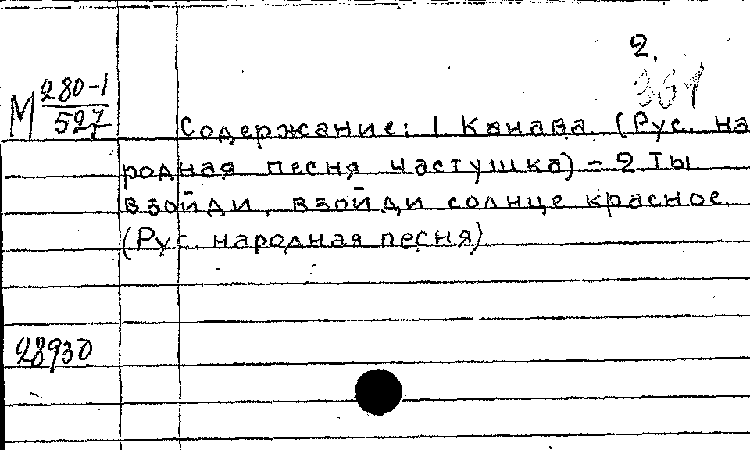 2.
361
М 280-1
527
Содержание: 1 Канава (Рус. на
родная песня частушка) - 2 Ты
взойди, взойди солнце красное
(Рус. народная песня)
28930